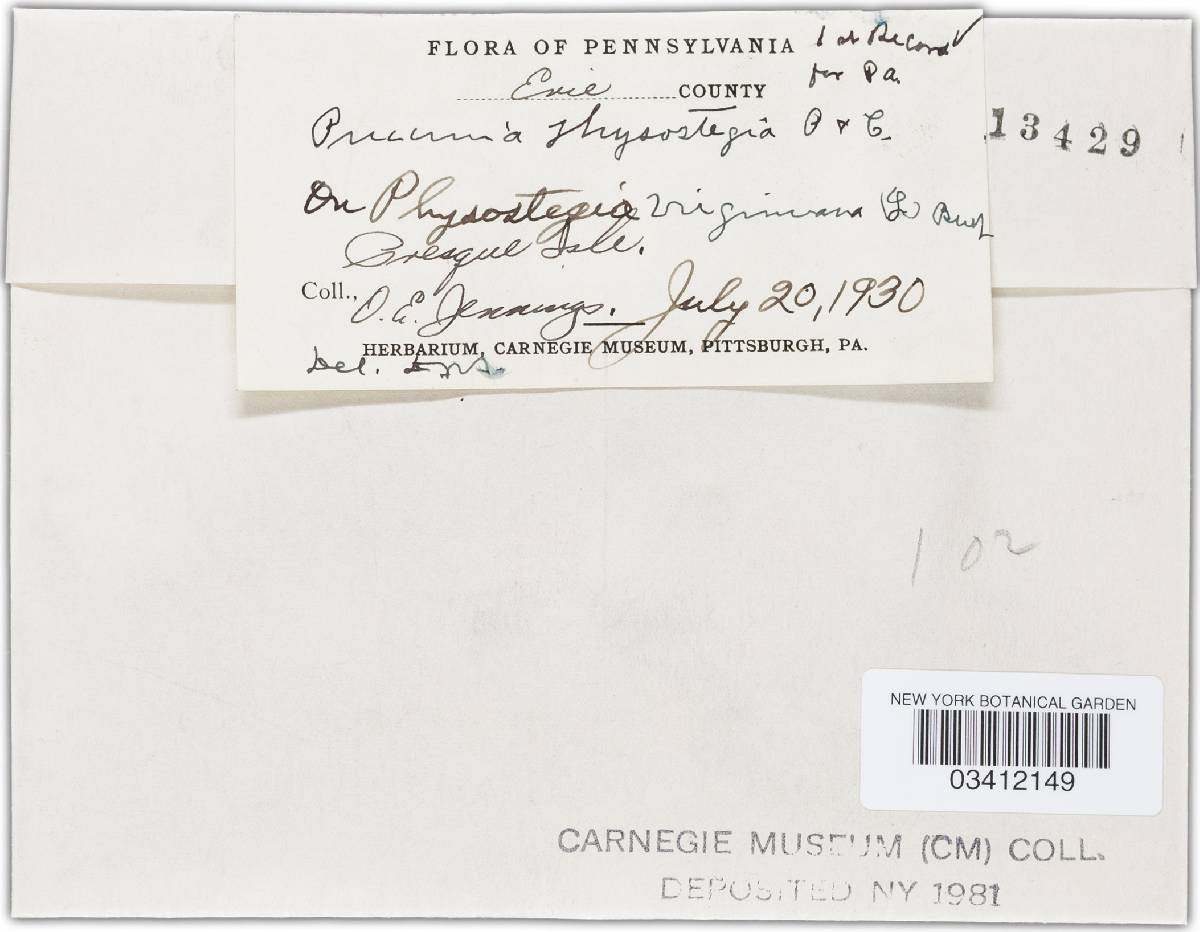 FLORA OF PENNSYLVANIA
1st Record
for Pa.
Erie COUNTY
Puccinia Physostegia P & C.
13429
On Physostegia Virginiana (L)
Presque Isle.
Coll., O. E. Jennings. July 20, 1930
HERBARIUM, CARNEGIE MUSEUM, PITTSBURGH, PA.
Det.
102
NEW YORK BOTANICAL GARDEN
03412149
CARNEGIE MUSEUM (CM) COLL.
DEPOSITED NY 1981